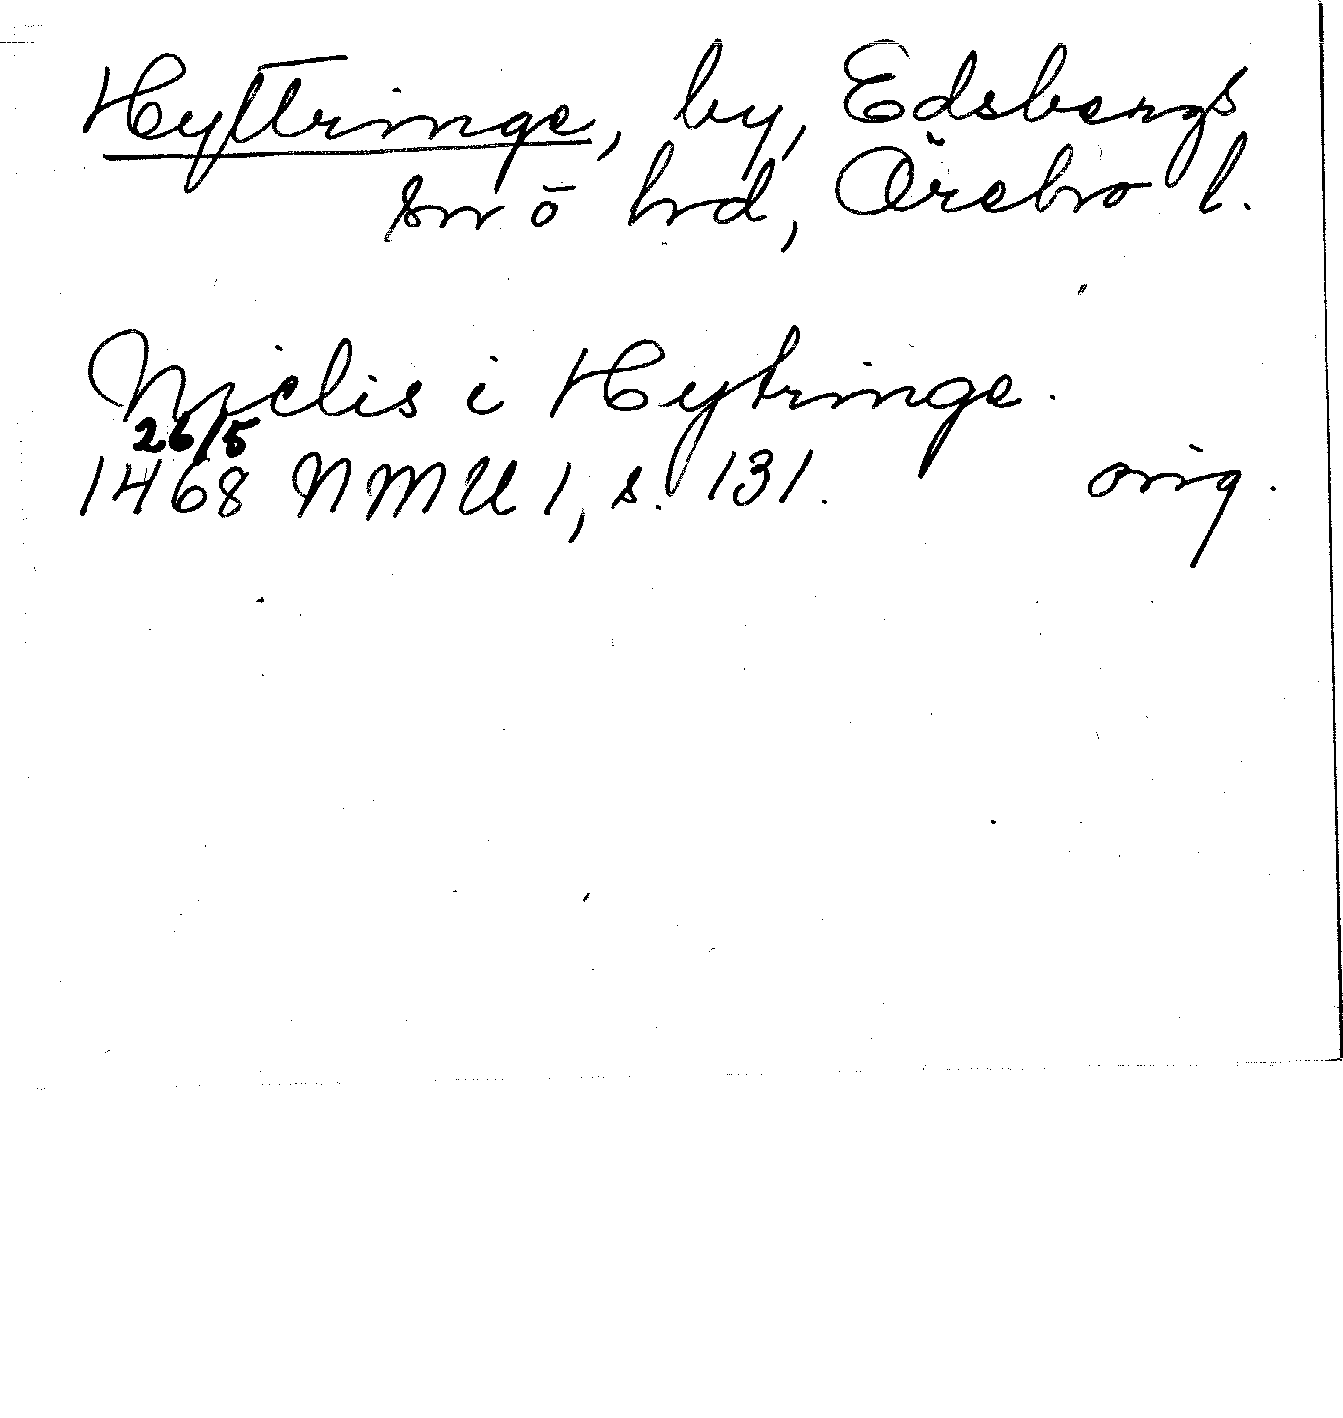 Hyttringe, by, Edsbergs
sn o hd, Örebro l.
Niclis i Hytringe.
26/5
1468 NMU 1, s. 131. orig.